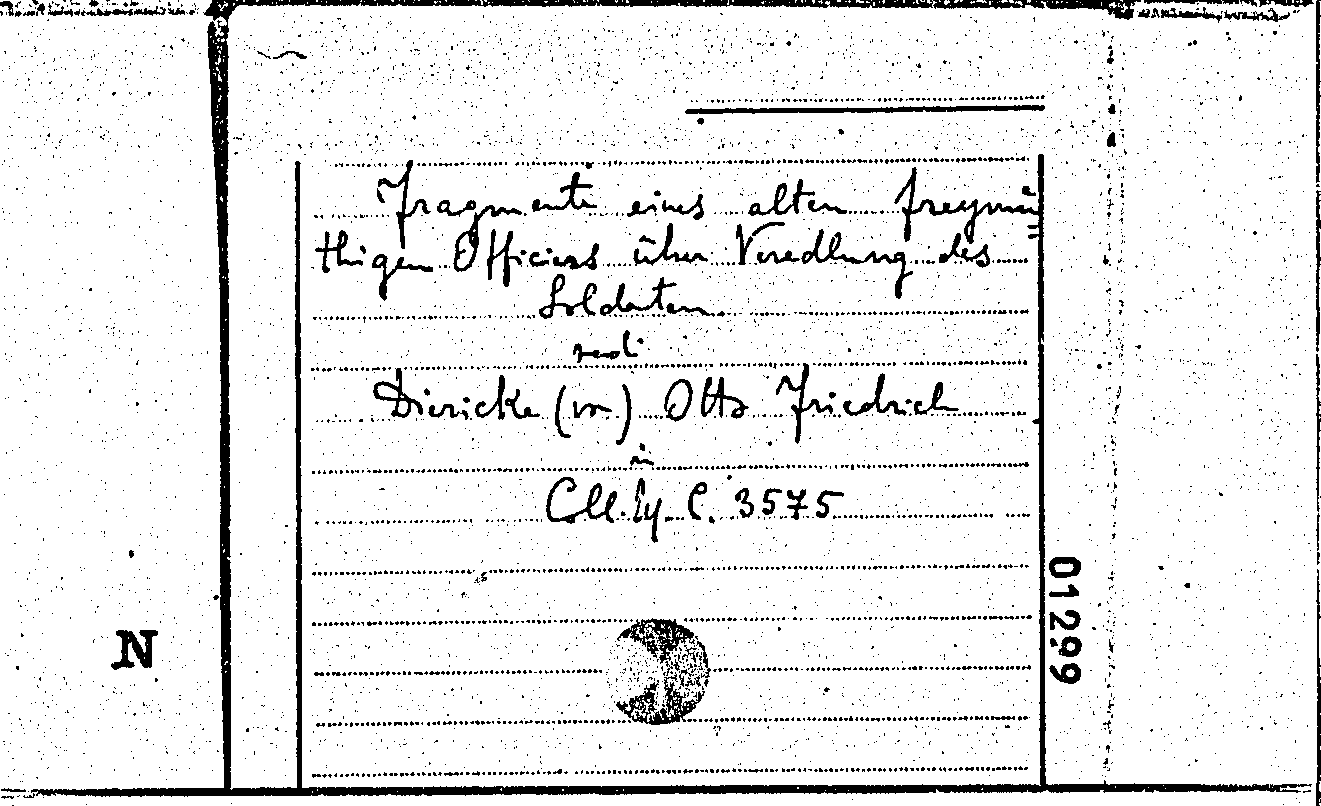 Fragmente eines alten freymü=
thigen Officiers über Veredlung des
Soldaten.
vedi
Diericke (von) Otto Friedrich
in
C. 3575
01299
N